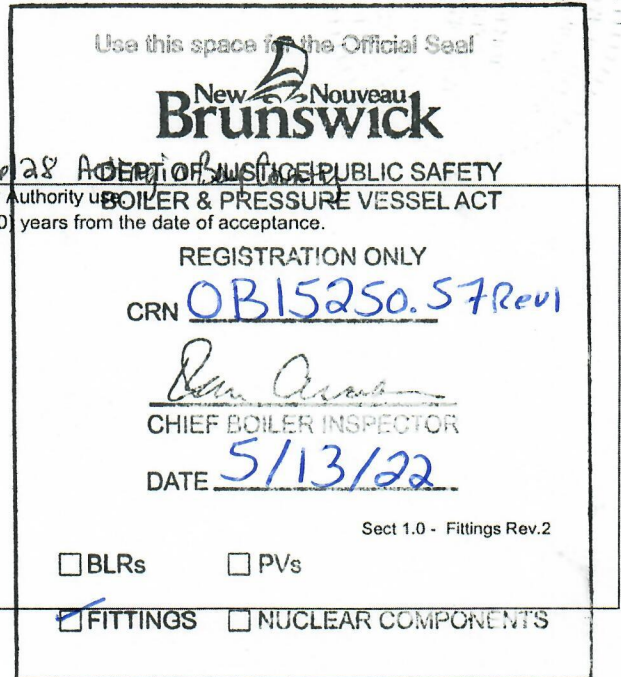 Use this space for the Official Seal
New Nouveau
Brunswick
DEPT OF JUSTICE PUBLIC SAFETY
Authority use.
BOILER & PRESSURE VESSEL ACT
0) years from the date of acceptance.
REGISTRATION ONLY
CRN 0B15250.57 Rev1
CHIEF BOILER INSPECTOR
DATE 5/13/22
Sect 1.0 - Fittings Rev.2
BLRs PVs
FITTINGS NUCLEAR COMPONENTS